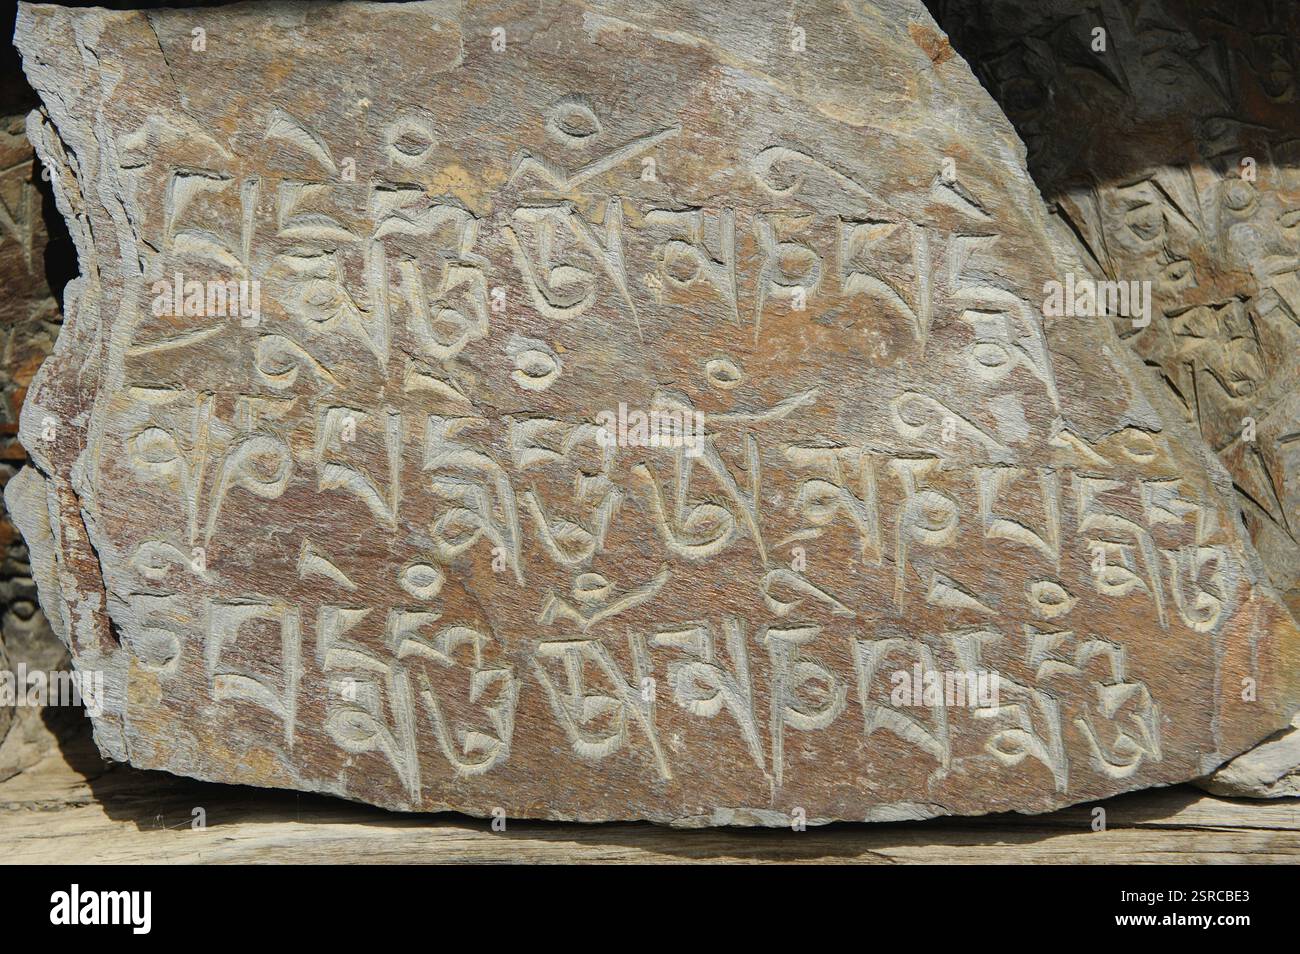 པདྨེཧཱུྃཨོཾམཎིཔདྨེ
མཎིཔདྨེཧཱུྃཨོཾམཎིཔདྨེཧཱུྃ
ཎིཔདྨེཧཱུྃཨོཾམཎིཔདྨེཧཱུྃ
alamy
Image ID: 2SRCBE3
www.alamy.com